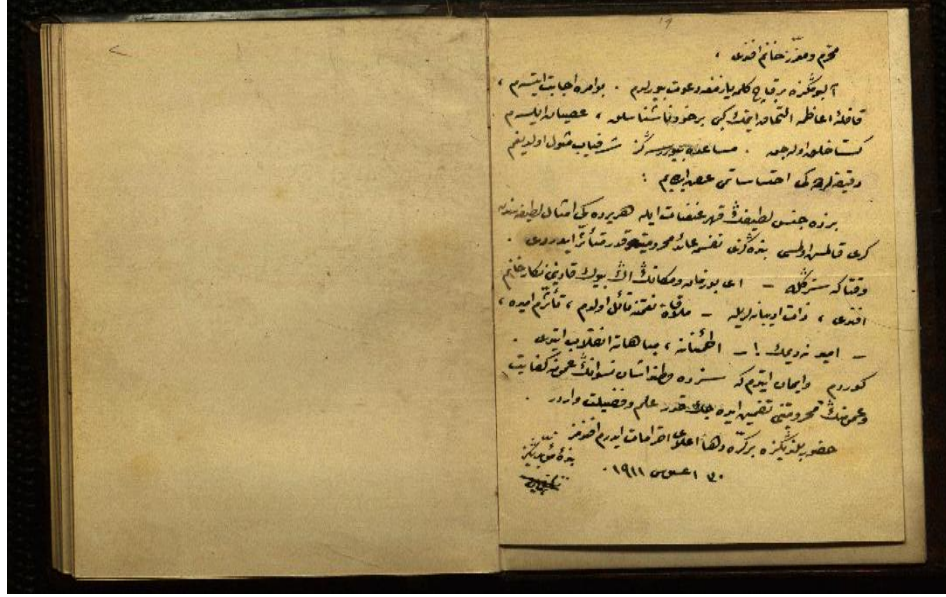 ١٩
محترم و معزز خانم افندى ،
آلبومكزه بر قاچ كلمه يازمغه دعوت بيورلدم . بو امره اجابت ايتسه‌م ،
قافلهٔ اعاظمه التحاق ايتمك كبى بر خودناشناسلق ، عصيان ايلسه‌م
كستاخلق اوله‌جق . مساعده بيوررسه‌كز شرفياب مثول اولديغم
دقيقه‌لرده‌كى احتساساتمى عرض ايده‌يم :
بزده جنس لطيفك قهر غفلت ايله هر يرده‌كى امثال لطيفه‌سندن
كرى قالمش اولمسى بنده‌كزى نفسمه عائد محروميت قدر متأثر ايدردى .
وقتا كه سزكله – اى بو زمان و مكانك اك بيوك قادينى نكار خانم
افندى ، ذات اديبانه‌لريله – ملاقات نعمتنه نائل اولدم ، تأثرم اميده ،
– اميد نه ديمك ! – اطمئنانه ، مباهاته انقلاب ايتدى .
كوردم و ايمان ايتدم كه سزده وطنداشان نسوانك عمومنه كفايت
و عمومنك محروميتنى تضمين ايده‌جك قدر علم و فضيلت واردر .
حضور بلندكزه بر كره دها اعلاى احترامات ايدرم افندمز
بندهٔ مؤبدكز
٣٠ اغستوس ١٩١١